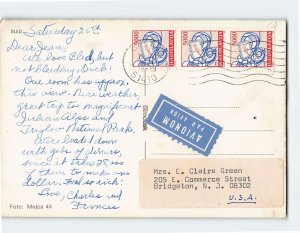 BLED
Saturday 26th
Dear Jean,
We love Bled, but
not bleeding. Ouch!
Our room has approx.
this view. Nice weather,
great trip to magnificent
Julian Alps and
Triglav National Park.
We're loaded down
with gobs of dinars,
since it takes 25,000
of them to make one
dollar. Feel so rich!
Love, Charles and
Frances
Foto: Majca 43
5000
5000
5000
JUGOSLAVIJA
AVIONOM
PAR AVION
Mrs. E. Claire Green
205 E. Commerce Street
Bridgeton, N. J. 08302
U.S.A.